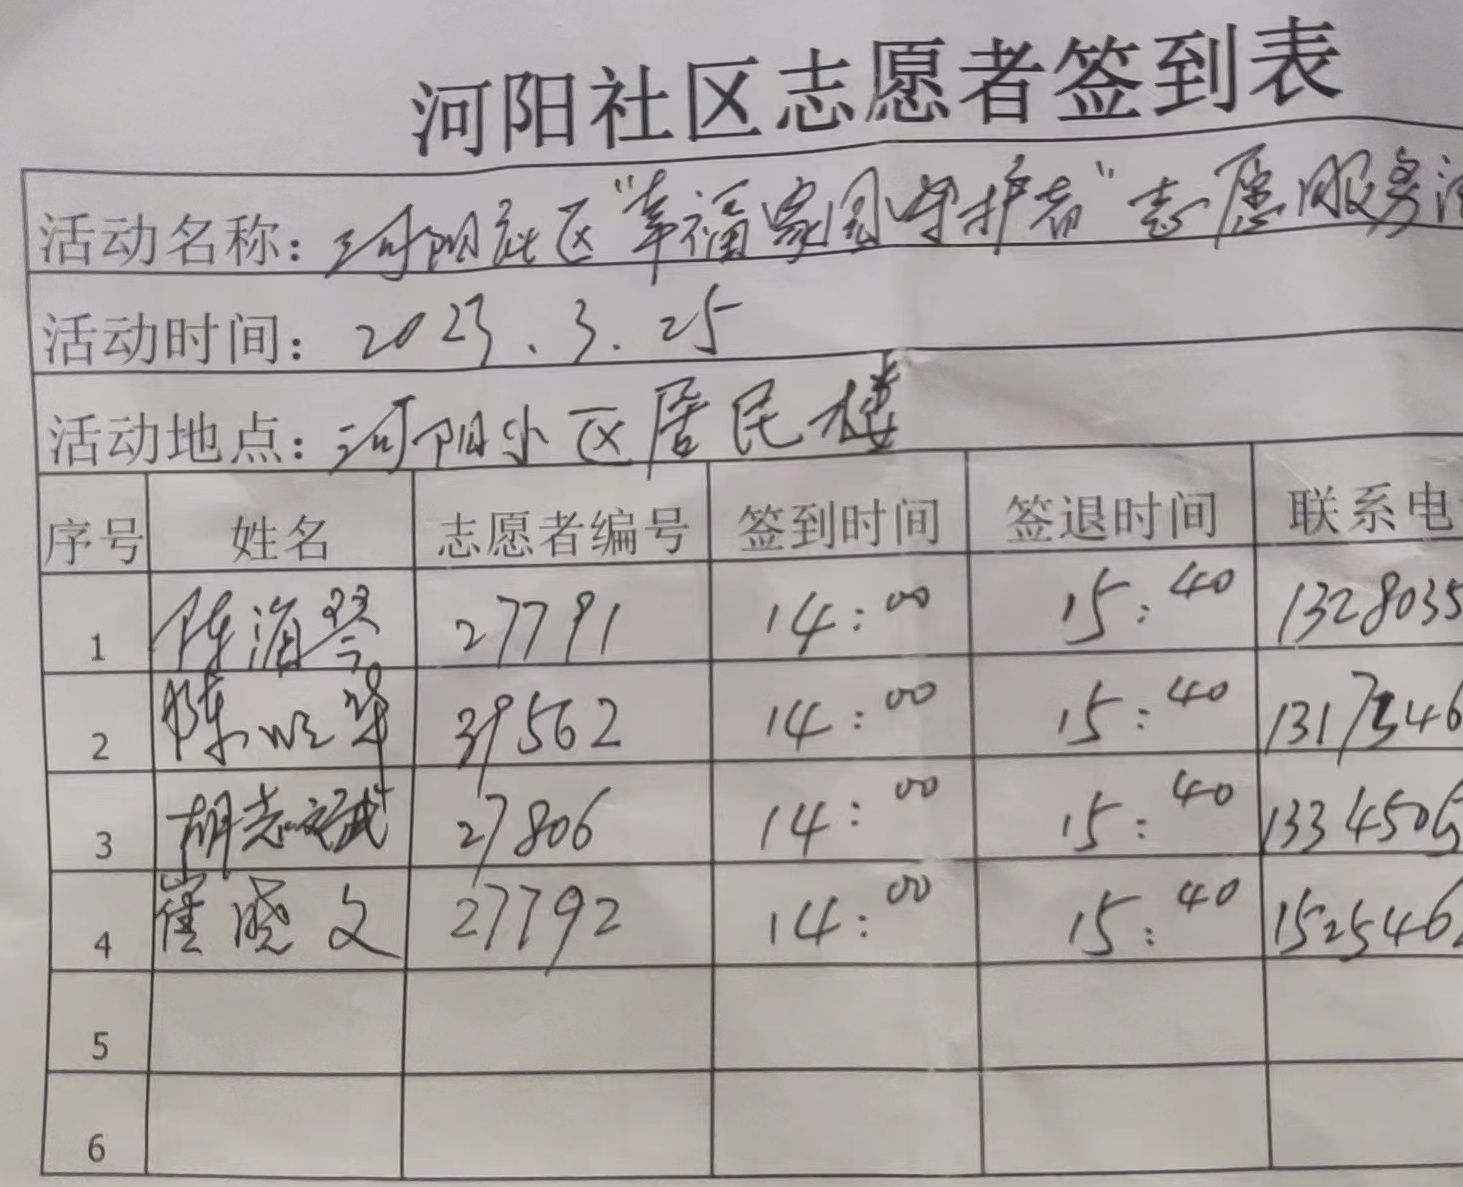 河阳社区志愿者签到表
活动名称：河阳社区“幸福家园守护者”志愿服务活
活动时间：2023.3.25
活动地点：河阳小区居民楼
序号 姓名 志愿者编号 签到时间 签退时间 联系电
1 陈海琴 27791 14:00 15:40 1328035
2 陈 39562 14:00 15:40 1317346
3 胡志斌 27806 14:00 15:40 1334505
4 崔晓文 27792 14:00 15:40 1525462
5
6